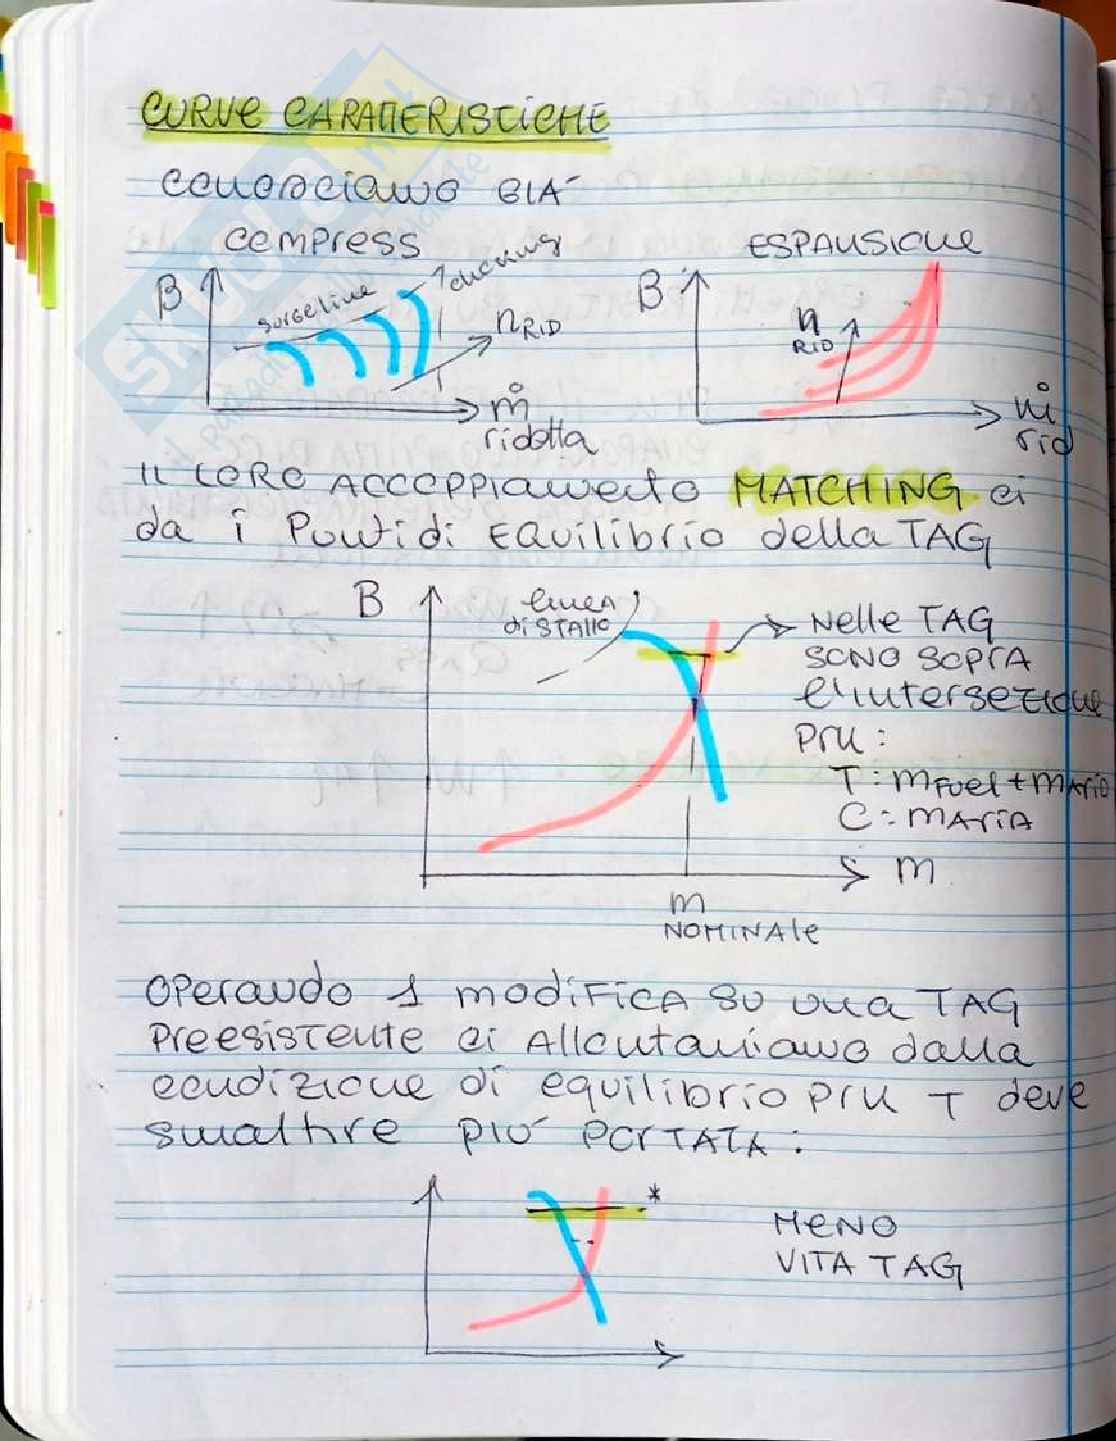 CURVE CARATTERISTICHE
CONOSCIAMO GIA'
COMPRESS
ESPANSIONE
B
surge line
choking
n RID
ṁ ridotta
B
n RID
ṁ rid
IL LORO ACCOPPIAMENTO MATCHING ci
da i PUNTI di EQUILIBRIO della TAG
B
linea
di STALLO
Nelle TAG
SONO SOPRA
l'intersezione
PerCh :
T : m Fuel + m Aria
C : m Aria
m
m
NOMINAle
OPerando 1 modifica su una TAG
Preesistente ci Allontaniamo dalla
condizione di equilibrio PerCh T deve
smaltire più PORTATA :
*
MENO
VITA TAG
SKUOLA
.net